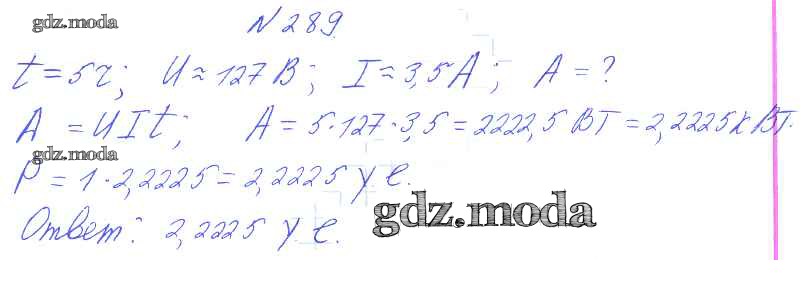 gdz.moda
N 289.
t = 5ч; U ≈ 127 В; I ≈ 3,5 А; A = ?
A = UIt; A = 5·127·3,5 = 2222,5 ВТ = 2,2225 кВТ.
gdz.moda
P = 1·2,2225 = 2,2225 у е.
gdz.moda
Ответ: 2,2225 у е.